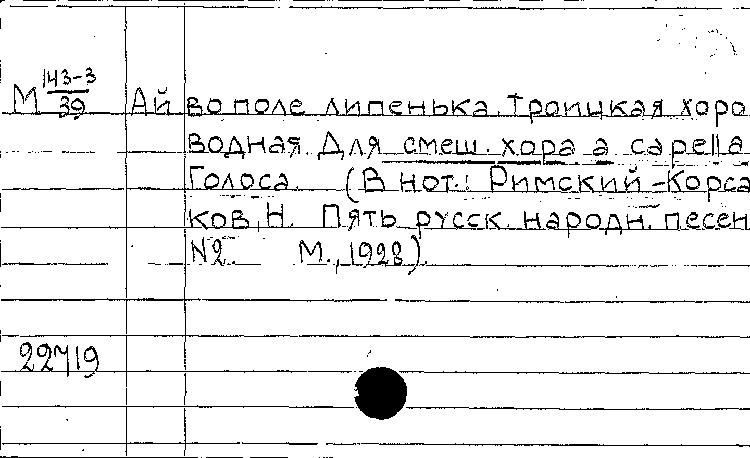 М 143-3/39 Ай во поле липенька. Троицкая хоро
водная. Для смеш. хора a capella
Голоса. (В нот.: Римский-Корса
ков, Н. Пять русск. народн. песен
№2. М., 1928).
22719